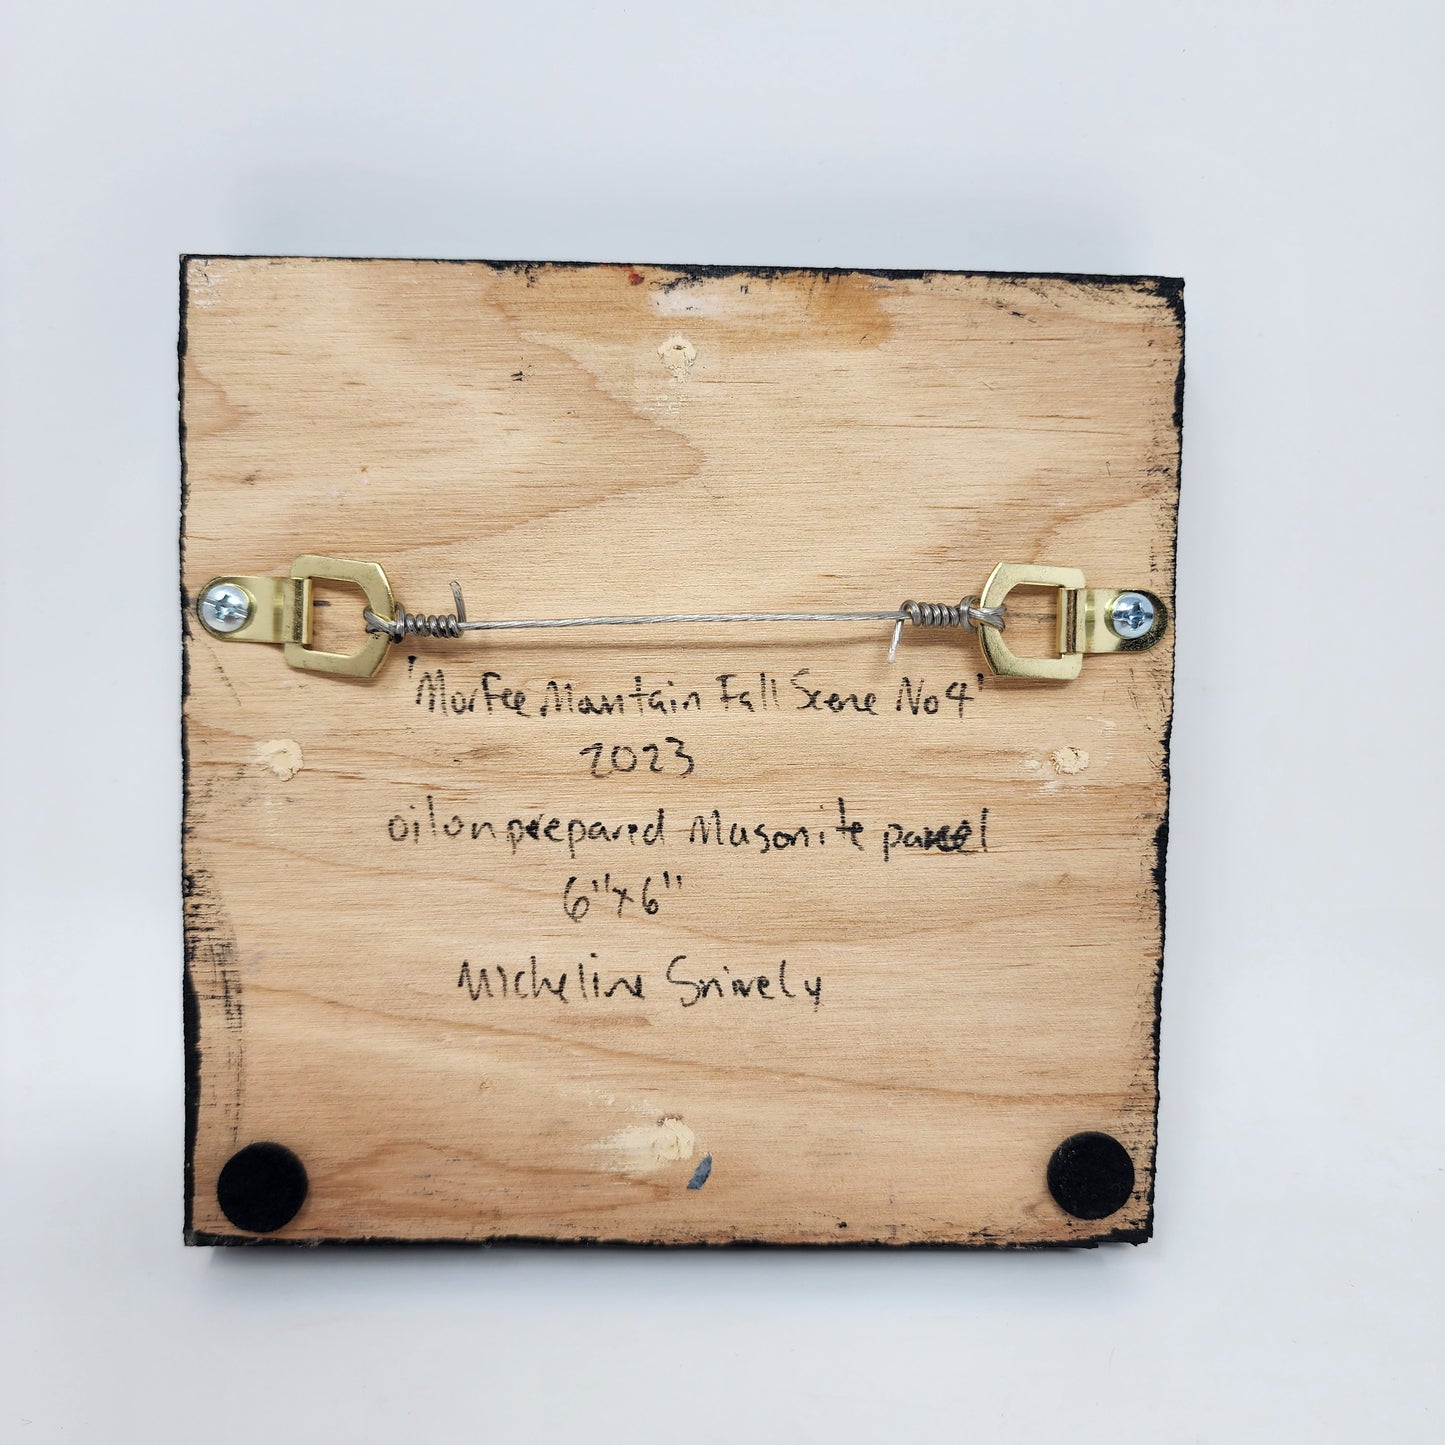 'Morfee Mountain Fall Scene No 4'
2023
oil on prepared Masonite panel
6"x6"
Micheline Snively